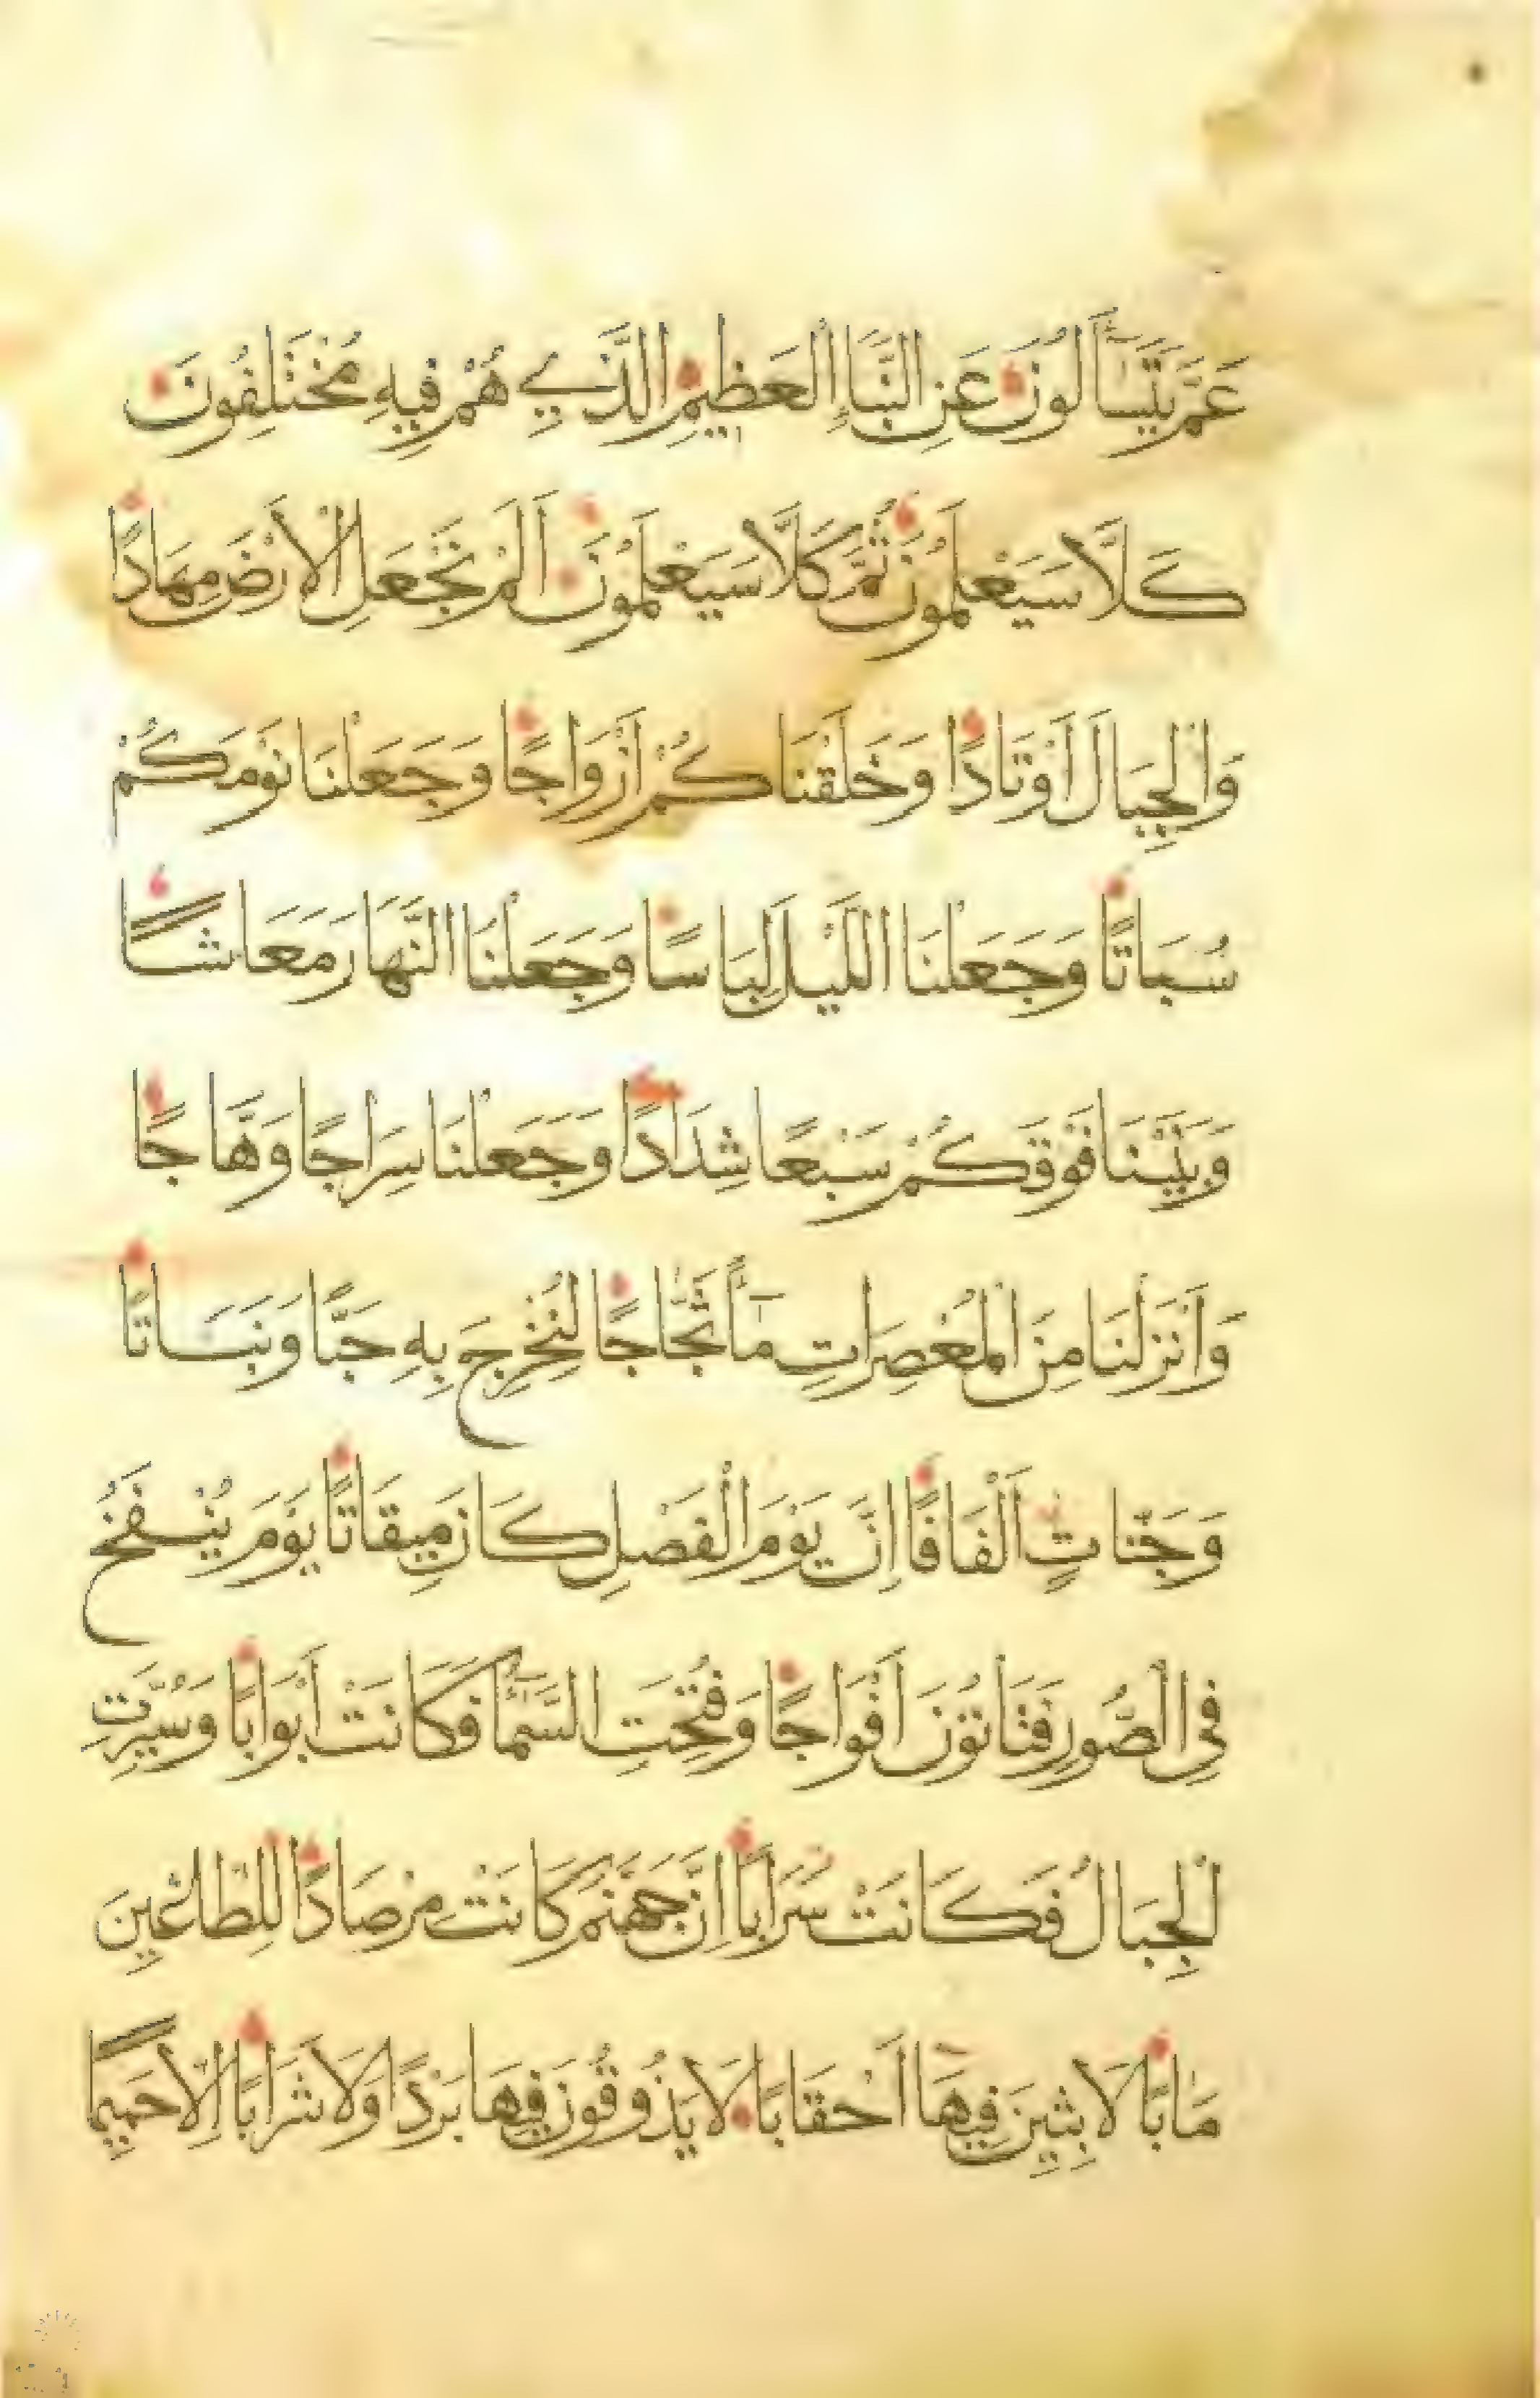 عَمَّ يَتَسَآءَلُونَ عَنِ النَّبَإِ الْعَظِيمِ الَّذِي هُمْ فِيهِ مُخْتَلِفُونَ
كَلَّا سَيَعْلَمُونَ ثُمَّ كَلَّا سَيَعْلَمُونَ أَلَمْ نَجْعَلِ الْأَرْضَ مِهَادًا
وَالْجِبَالَ أَوْتَادًا وَخَلَقْنَاكُمْ أَزْوَاجًا وَجَعَلْنَا نَوْمَكُمْ
سُبَاتًا وَجَعَلْنَا اللَّيْلَ لِبَاسًا وَجَعَلْنَا النَّهَارَ مَعَاشًا
وَبَنَيْنَا فَوْقَكُمْ سَبْعًا شِدَادًا وَجَعَلْنَا سِرَاجًا وَهَّاجًا
وَأَنْزَلْنَا مِنَ الْمُعْصِرَاتِ مَآءً ثَجَّاجًا لِنُخْرِجَ بِهِ حَبًّا وَنَبَاتًا
وَجَنَّاتٍ أَلْفَافًا إِنَّ يَوْمَ الْفَصْلِ كَانَ مِيقَاتًا يَوْمَ يُنْفَخُ
فِي الصُّورِ فَتَأْتُونَ أَفْوَاجًا وَفُتِحَتِ السَّمَآءُ فَكَانَتْ أَبْوَابًا وَسُيِّرَتِ
الْجِبَالُ فَكَانَتْ سَرَابًا إِنَّ جَهَنَّمَ كَانَتْ مِرْصَادًا لِلطَّاغِينَ
مَآبًا لَابِثِينَ فِيهَآ أَحْقَابًا لَا يَذُوقُونَ فِيهَا بَرْدًا وَلَا شَرَابًا إِلَّا حَمِيمًا